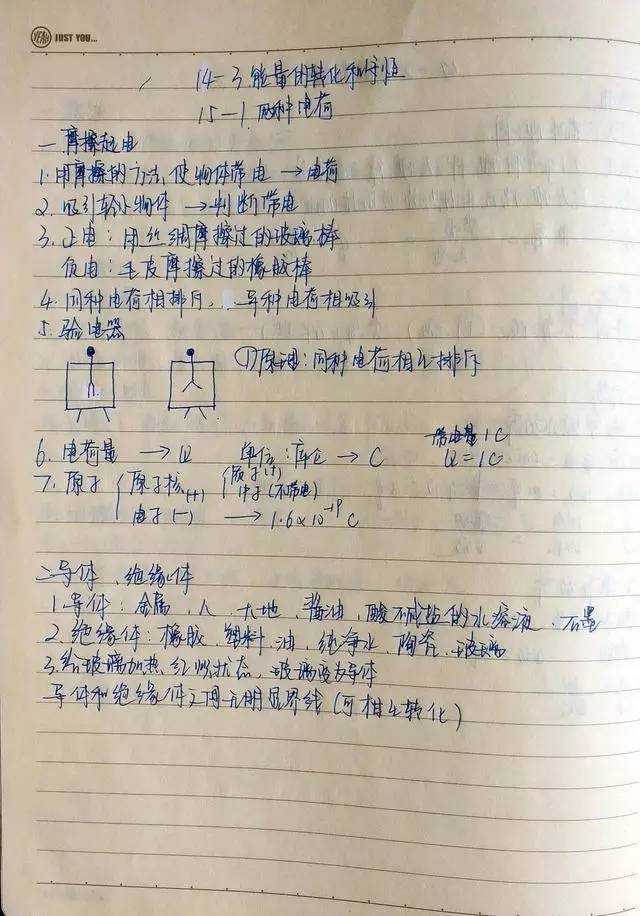 YEAH JUST YOU...
14-3 能量的转化和守恒
15-1 两种电荷
一 摩擦起电
1. 用摩擦的方法, 使物体带电 → 电荷
2. 吸引轻小物体 → 判断带电
3. 正电: 用丝绸摩擦过的玻璃棒
负电: 毛皮摩擦过的橡胶棒
4. 同种电荷相排斥, 异种电荷相吸引
5. 验电器
①原理: 同种电荷相互排斥
6. 电荷量 → Q 单位: 库仑 → C 带电量1C
Q=1C
7. 原子 { 原子核(+) { 质子(+)
中子(不带电)
电子(-) → 1.6×10⁻¹⁹C
二 导体、绝缘体
1. 导体: 金属、人、大地、酱油、酸碱盐的水溶液、石墨
2. 绝缘体: 橡胶、塑料、油、纯净水、陶瓷、玻璃
3. 给玻璃加热红炽状态, 玻璃变为导体
导体和绝缘体之间无明显界线(可相互转化)